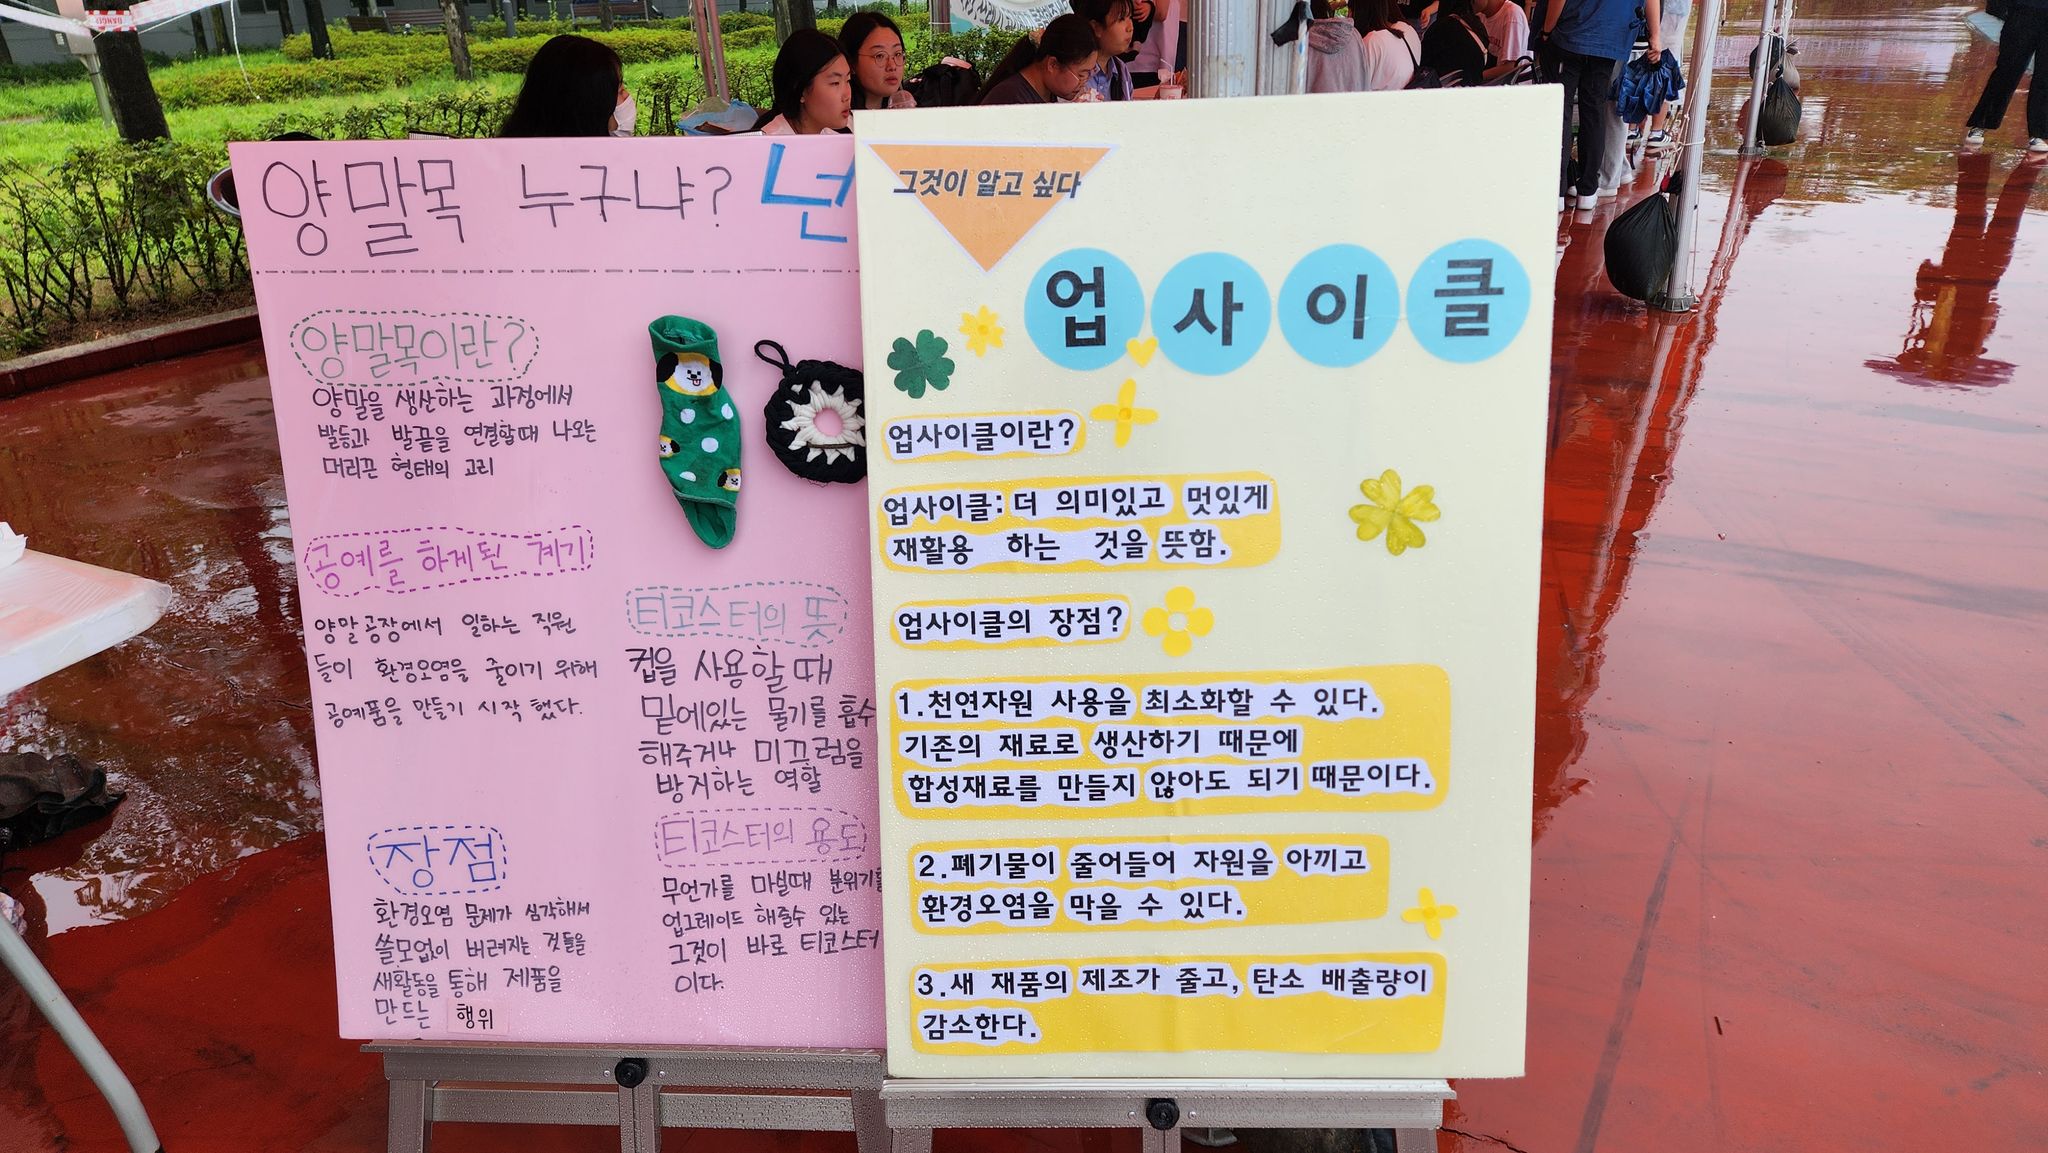 양말목 누구냐? 넌
양말목이란?
양말을 생산하는 과정에서
발등과 발끝을 연결할때 나오는
머리끈 형태의 고리
공예를 하게된 계기
양말공장에서 일하는 직원
들이 환경오염을 줄이기 위해
공예품을 만들기 시작 했다.
장점
환경오염 문제가 심각해서
쓸모없이 버려지는 것들을
새활동을 통해 제품을
만드는 행위
티코스터의 뜻
컵을 사용할 때
밑에있는 물기를 흡수
해주거나 미끄럼을
방지하는 역할
티코스터의 용도
무언가를 마실때 분위기를
업그레이드 해줄수 있는
그것이 바로 티코스터
이다.
그것이 알고 싶다
업사이클
업사이클이란?
업사이클: 더 의미있고 멋있게
재활용 하는 것을 뜻함.
업사이클의 장점?
1.천연자원 사용을 최소화할 수 있다.
기존의 재료로 생산하기 때문에
합성재료를 만들지 않아도 되기 때문이다.
2.폐기물이 줄어들어 자원을 아끼고
환경오염을 막을 수 있다.
3.새 재품의 제조가 줄고, 탄소 배출량이
감소한다.